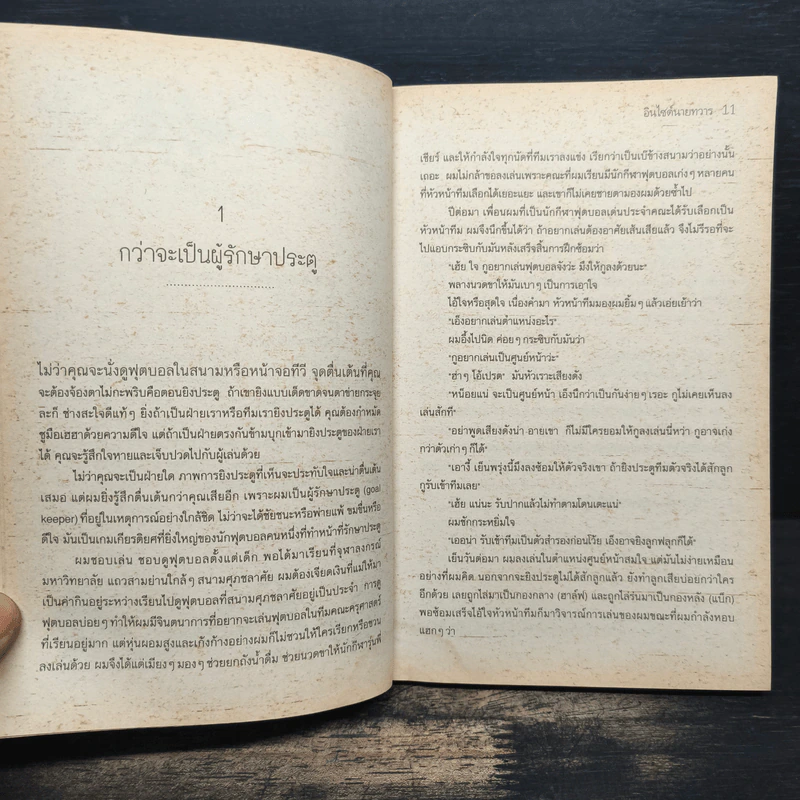 1
กว่าจะเป็นผู้รักษาประตู
ไม่ว่าคุณจะนั่งดูฟุตบอลในสนามหรือหน้าจอทีวี จุดตื่นเต้นที่คุณ
จะต้องจ้องตาไม่กะพริบคือตอนยิงประตู ถ้าเขายิงแบบเด็ดขาดจนตาข่ายกระจุย
ละก็ ช่างสะใจดีแท้ๆ ยิ่งถ้าเป็นฝ่ายเราหรือทีมเรายิงประตูได้ คุณต้องกำหมัด
ชูมือเฮฮาด้วยความดีใจ แต่ถ้าเป็นฝ่ายตรงกันข้ามบุกเข้ามายิงประตูของฝ่ายเรา
ได้ คุณจะรู้สึกใจหายและเจ็บปวดไปกับผู้เล่นด้วย
ไม่ว่าคุณจะเป็นฝ่ายใด ภาพการยิงประตูที่เห็นจะประทับใจและน่าตื่นเต้น
เสมอ แต่ผมยิ่งรู้สึกตื่นเต้นกว่าคุณเสียอีก เพราะผมเป็นผู้รักษาประตู (goal
keeper) ที่อยู่ในเหตุการณ์อย่างใกล้ชิด ไม่ว่าจะได้ชัยชนะหรือพ่ายแพ้ ขมขื่นหรือ
ดีใจ มันเป็นเกมเกียรติยศที่ยิ่งใหญ่ของนักฟุตบอลคนหนึ่งที่ทำหน้าที่รักษาประตู
ผมชอบเล่น ชอบดูฟุตบอลตั้งแต่เด็ก พอได้มาเรียนที่จุฬาลงกรณ์
มหาวิทยาลัย แถวสามย่านใกล้ๆ สนามศุภชลาศัย ผมต้องเจียดเงินที่แม่ให้มา
เป็นค่ากินอยู่ระหว่างเรียนไปดูฟุตบอลที่สนามศุภชลาศัยอยู่เป็นประจำ การดู
ฟุตบอลบ่อยๆ ทำให้ผมมีจินตนาการที่อยากจะเล่นฟุตบอลในทีมคณะครุศาสตร์
ที่เรียนอยู่มาก แต่หุ่นผอมสูงและเก้งก้างอย่างผมก็ไม่ชวนให้ใครเรียกหรือชวน
ลงเล่นด้วย ผมจึงได้แต่เมียงๆ มองๆ ช่วยยกถังน้ำดื่ม ช่วยนวดขาให้นักกีฬารุ่นพี่
อินไซด์นายทวาร 11
เชียร์ และให้กำลังใจทุกนัดที่ทีมเราลงแข่ง เรียกว่าเป็นเบ๊ข้างสนามว่าอย่างนั้น
เถอะ ผมไม่กล้าขอลงเล่นเพราะคณะที่ผมเรียนมีนักกีฬาฟุตบอลเก่งๆ หลายคน
ที่หัวหน้าทีมเลือกได้เยอะแยะ และเขาก็ไม่เคยชายตามองผมด้วยซ้ำไป
ปีต่อมา เพื่อนผมที่เป็นนักกีฬาฟุตบอลเด่นประจำคณะได้รับเลือกเป็น
หัวหน้าทีม ผมจึงนึกขึ้นได้ว่า ถ้าอยากเล่นต้องอาศัยเส้นเสียแล้ว จึงไม่รีรอที่จะ
ไปแอบกระซิบกับมันหลังเสร็จสิ้นการฝึกซ้อมว่า
"เฮ้ย ใจ กูอยากเล่นฟุตบอลจังว่ะ มึงให้กูลงด้วยนะ"
พลางนวดขาให้มันเบาๆ เป็นการเอาใจ
ไอ้ใจหรือสุดใจ เนื่องคำมา หัวหน้าทีมมองผมยิ้มๆ แล้วเอ่ยเย้าว่า
"เอ็งอยากเล่นตำแหน่งอะไร"
ผมอึ้งไปนิด ค่อยๆ กระซิบกับมันว่า
"กูอยากเล่นเป็นศูนย์หน้าว่ะ"
"ฮ่าๆ ไอ้เปรต" มันหัวเราะเสียงดัง
"หนอยแน่ จะเป็นศูนย์หน้า เอ็งนึกว่าเป็นกันง่ายๆ เรอะ กูไม่เคยเห็นลง
เล่นสักที"
"อย่าพูดเสียงดังน่า อายเขา ก็ไม่มีใครยอมให้กูลงเล่นนี่หว่า กูอาจเก่ง
กว่าตัวเก่าๆ ก็ได้"
"เอางี้ เย็นพรุ่งนี้มึงลงซ้อมให้ตัวจริงเขา ถ้ายิงประตูทีมตัวจริงได้สักลูก
กูรับเข้าทีมเลย"
"เฮ้ย แน่นะ รับปากแล้วไม่ทำตามโดนเตะแน่"
ผมชักกระหยิ่มใจ
"เออน่า รับเข้าทีมเป็นตัวสำรองก่อนโว้ย เอ็งอาจยิงลูกฟลุกก็ได้"
เย็นวันต่อมา ผมลงเล่นในตำแหน่งศูนย์หน้าสมใจ แต่มันไม่ง่ายเหมือน
อย่างที่ผมคิด นอกจากจะยิงประตูไม่ได้สักลูกแล้ว ยังทำลูกเสียบ่อยกว่าใคร
อีกด้วย เลยถูกไล่มาเป็นกองกลาง (ฮาล์ฟ) และถูกไล่ร่นมาเป็นกองหลัง (แบ็ก)
พอซ้อมเสร็จไอ้ใจหัวหน้าทีมก็มาวิจารณ์การเล่นของผมขณะที่ผมกำลังหอบ
แฮกๆ ว่า